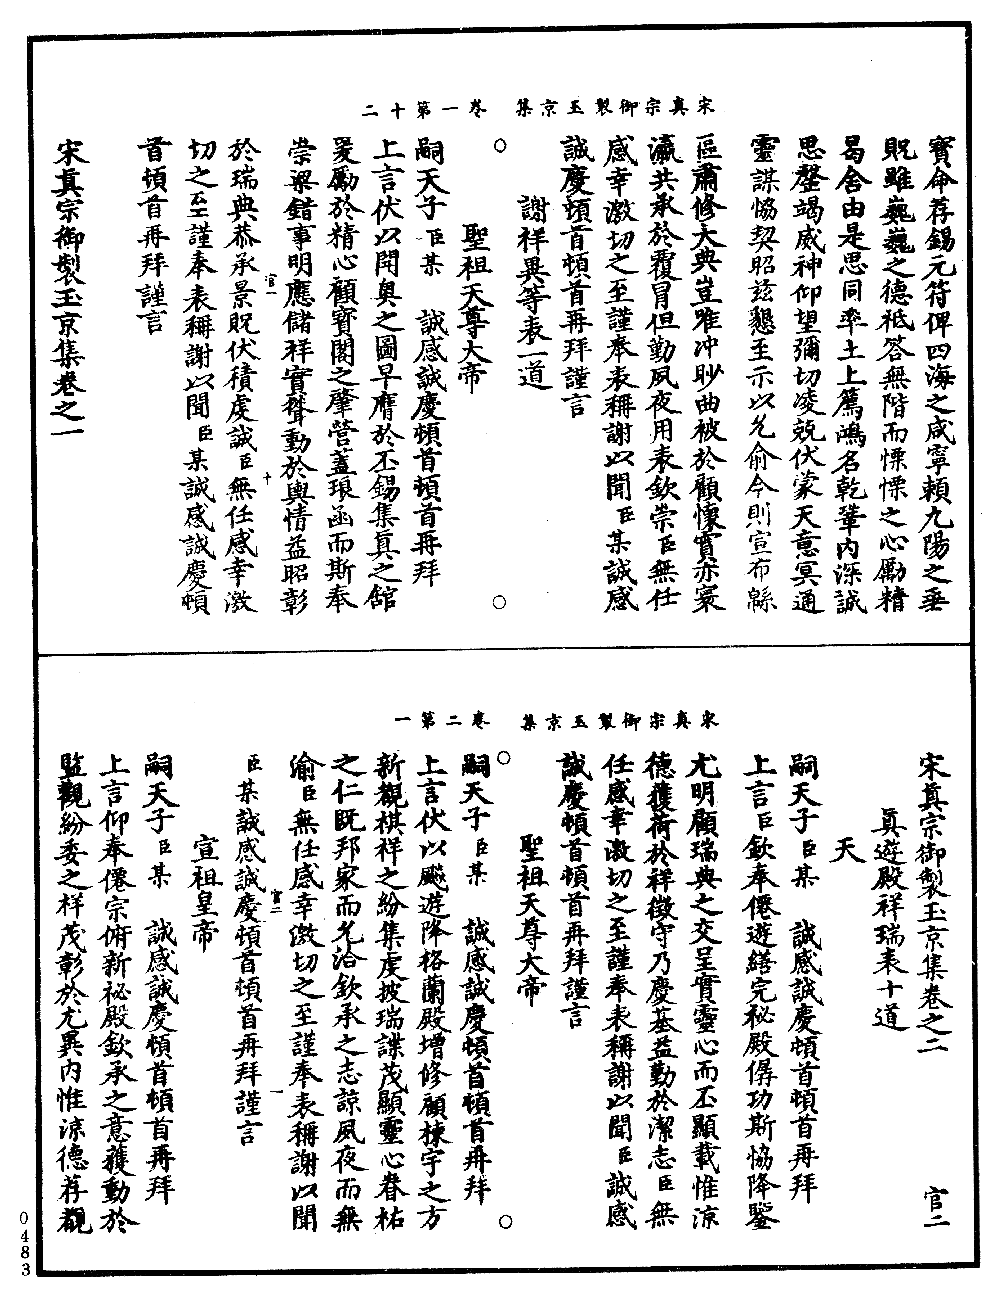 宋真宗御製玉京集　卷一第十二
寶命荐錫元符俾四海之咸寧賴九陽之垂
貺雖巍巍之德祇答無階而慄慄之心勵精
曷舍由是思同率土上薦鴻名乾鞏內深誠
思罄竭威神仰望彌切凌兢伏蒙天意冥通
靈謀恊契昭茲懇至示以允俞今則宣布緜
區肅修大典豈唯冲眇曲被於顧懷實亦寰
瀛共承於覆冒但勤夙夜用表欽崇臣無任
感幸激切之至謹奉表稱謝以聞臣某誠感
誠慶頓首頓首再拜謹言
謝祥異等表一道
聖祖天尊大帝
嗣天子臣某　誠感誠慶頓首頓首再拜
上言伏以開奥之圖早膺於丕錫集真之舘
爰勵於精心顧寳閣之肇營蓋琅函而斯奉
崇梁錯事明應儲祥實聳動於輿情益昭彰
於瑞典恭承景貺伏積虔誠臣無任感幸激
切之至謹奉表稱謝以聞臣某誠感誠慶頓
首頓首再拜謹言
宋真宗御製玉京集卷之一
官一　十
宋真宗御製玉京集　卷二第一
宋真宗御製玉京集卷之二　官二
真遊殿祥瑞表十道
天
嗣天子臣某　誠感誠慶頓首頓首再拜
上言臣欽奉僊遊繕完秘殿僝功斯恊降鑒
尤明顧瑞典之交呈實靈心而丕顯載惟涼
德獲荷於祥徵守乃慶基益勤於潔志臣無
任感幸激切之至謹奉表稱謝以聞臣誠感
誠慶頓首頓首再拜謹言
聖祖天尊大帝
嗣天子臣某　誠感誠慶頓首頓首再拜
上言伏以飈遊降格蘭殿增修顧棟宇之方
新觀祺祥之紛集虔披瑞諜茂顯靈心眷祐
之仁既邦家而允洽欽承之志諒夙夜而無
渝臣無任感幸激切之至謹奉表稱謝以聞
臣某誠感誠慶頓首頓首再拜謹言
宣祖皇帝
嗣天子臣某　誠感誠慶頓首頓首再拜
上言仰奉僊宗俯新祕殿欽承之意獲動於
監觀紛委之祥茂彰於尤異內惟涼德荐觀
官二　一
0483